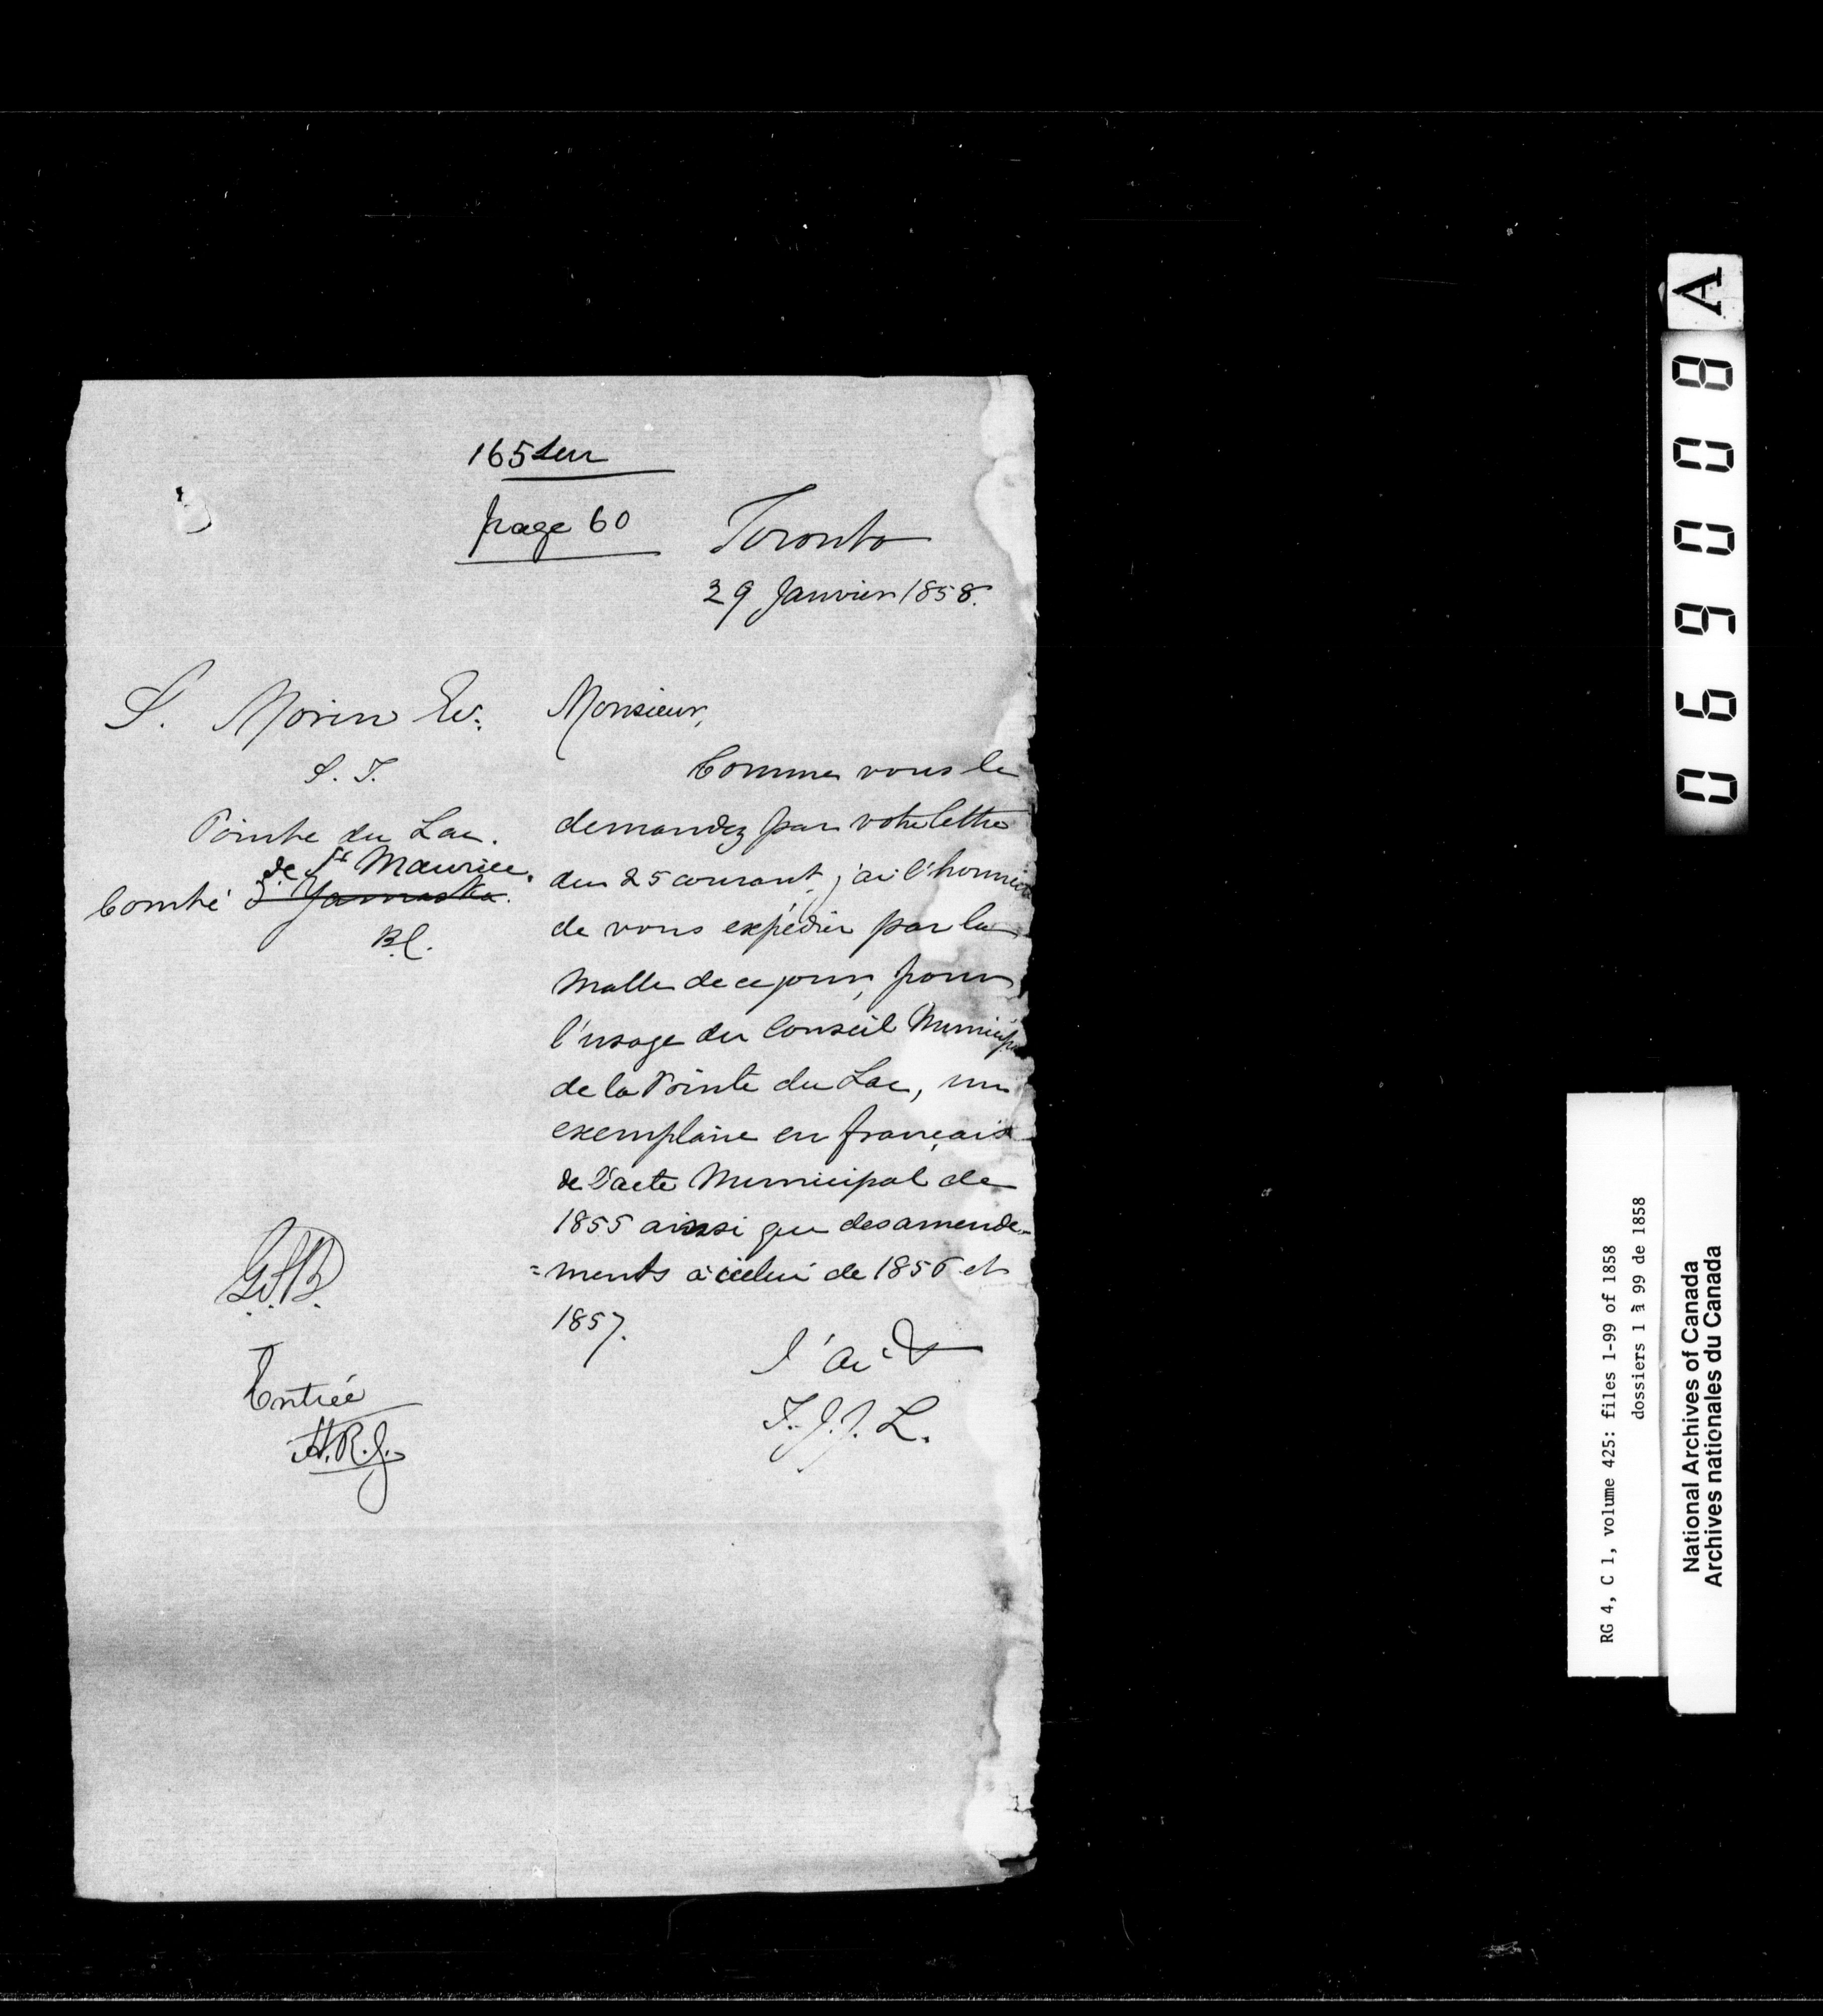 165
page 60
Toronto
29 Janvier 1858.
S. Morin
S. T.
Pointe du Lac.
de St Maurice.
Comté d'Yamaska.
B.C.
Monsieur,
Comme vous le
demandez par votre lettre
du 25 courant, j'ai l'honneur
de vous expédier par la
Malle de ce jour, pour
l'usage du Conseil Municip
de la Pointe du Lac, un
exemplaire en français
de l'acte Municipal de
1855 ainsi que des amende-
=ments à icelui de 1856 et
1857.
J'ai &
T. J. J. L.
Entrée
H.R.J.
A
069008
RG 4, C 1, volume 425: files 1-99 of 1858
dossiers 1 à 99 de 1858
National Archives of Canada
Archives nationales du Canada